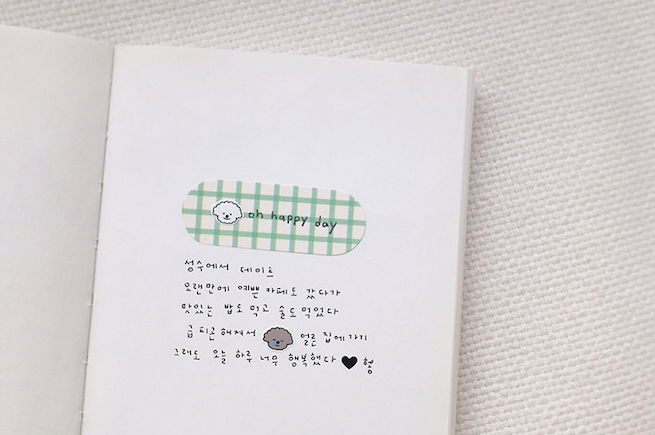 oh happy day
성수에서 데이트
오랜만에 예쁜 카페도 갔다가
맛있는 밥도 먹고 술도 먹었다
급 피곤해져서 얼른 집에가기
그래도 오늘 하루 너무 행복했다 ♥ 헹